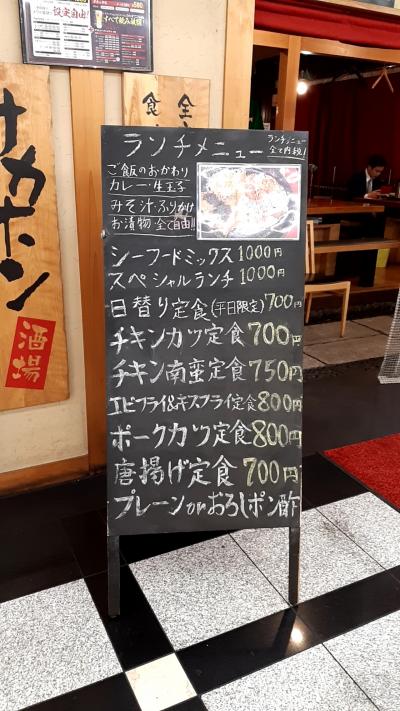 ランチメニュー
ランチメニュー
全て内税!
ご飯のおかわり
カレー・生玉子
みそ汁・ふりかけ
お漬物・全て自由!!
シーフードミックス 1000円
スペシャルランチ 1000円
日替り定食(平日限定)700円
チキンカツ定食 700円
チキン南蛮定食 750円
エビフライ&キスフライ定食 800円
ポークカツ定食 800円
唐揚げ定食 700円
プレーンorおろしポン酢
カホン
酒場
全
食
設定自由!
すべて飲み放題!